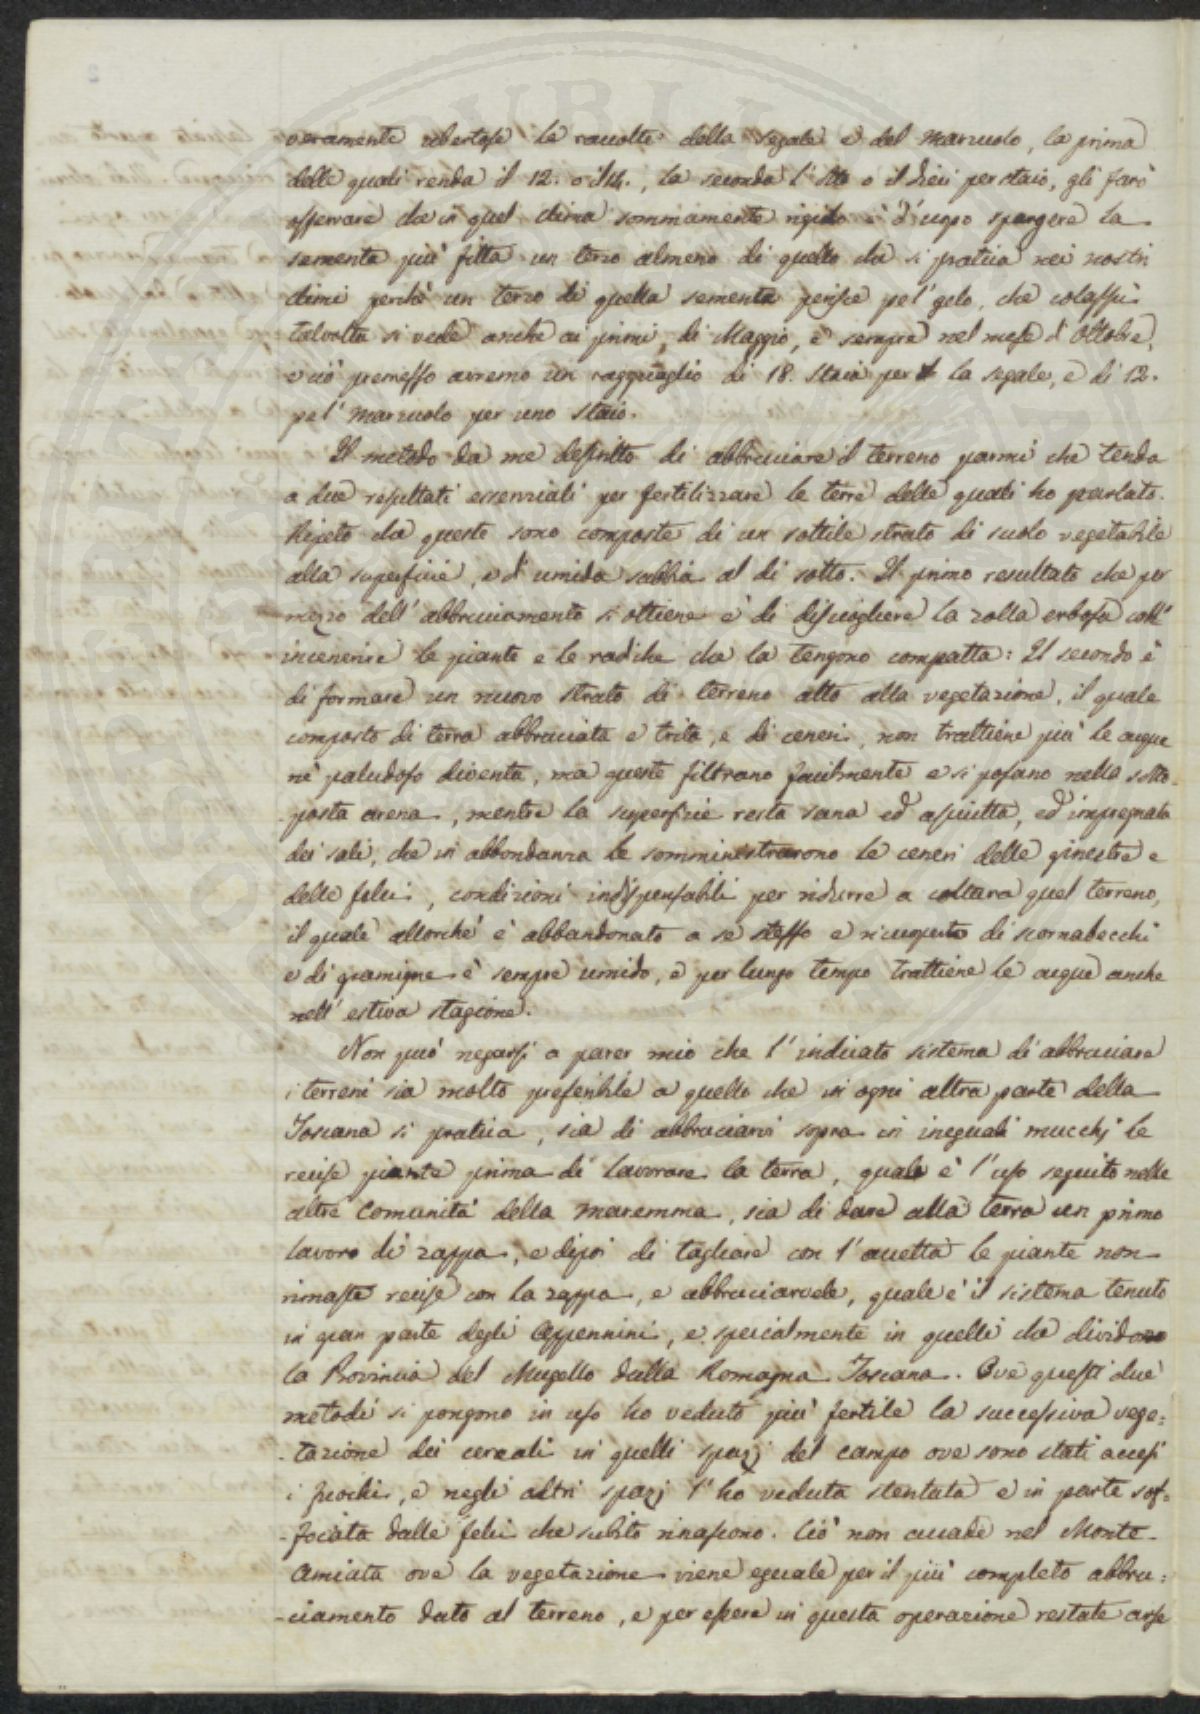 veramente ubertose le raccolte della segale e del marzuolo, la prima
delle quali renda il 12. o il 14., la seconda l'otto o il dieci per staio, gli farò
osservare che in quel clima sommamente rigido è d'uopo spargere la
sementa più fitta un terzo almeno di quello che si pratica nei nostri
climi perchè un terzo di quella sementa perisce pel' gelo, che colassù
talvolta si vede anche ai primi di Maggio, e sempre nel mese d'Ottobre,
e ciò premesso avremo un ragguaglio di 18. staia per la segale, e di 12.
pel' marzuolo per uno staio.
Il metodo da me descritto di abbruciare il terreno parmi che tenda
a due resultati essenziali per fertilizzare le terre delle quali ho parlato.
Ripeto che queste sono composte di un sottile strato di suolo vegetabile
alla superficie, e d'umida sabbia al di sotto. Il primo resultato che per
mezzo dell'abbruciamento si ottiene è di disciogliere la zolla erbosa coll'
incenerire le piante e le radiche che la tengono compatta: Il secondo è
di formare un nuovo strato di terreno atto alla vegetazione, il quale
composto di terra abbruciata e trita, e di ceneri, non trattiene più le acque
nè paludoso diventa, ma queste filtrano facilmente e si posano nella sotto-
-posta arena, mentre la superficie resta sana ed asciutta, ed impregnata
dei sali, che in abbondanza le somministrarono le ceneri delle ginestre e
delle felci, condizioni indispensabili per ridurre a coltura quel terreno,
il quale allorchè è abbandonato a se stesso e ricuoperto di scornabecchi
e di gramigne è sempre umido, e per lungo tempo trattiene le acque anche
nell'estiva stagione.
Non può negarsi a parer mio che l'indicato sistema di abbruciare
i terreni sia molto preferibile a quello che in ogni altra parte della
Toscana si pratica, sia di abbruciarvi sopra in ineguali mucchj le
recise piante prima di lavorare la terra, quale è l'uso seguito nelle
altre Comunità della Maremma, sia di dare alla terra un primo
lavoro di zappa, e dipoi di tagliare con l'accetta le piante non
rimaste recise con la zappa, e abbruciarvele, quale è il sistema tenuto
in gran parte degli Appennini, e specialmente in quelli che dividono
la Provincia del Mugello dalla Romagna Toscana. Ove questi due
metodi si pongono in uso ho veduto più fertile la successiva vege=
-tazione dei cereali in quelli spazj del campo ove sono stati accesi
i fuochi, e negli altri spazj l'ho veduta stentata e in parte sof-
-focata dalle felci che subito rinascono. Ciò non accade nel Monte-
Amiata ove la vegetazione viene eguale per il più completo abbru=
-ciamento dato al terreno, e per essere in questa operazione restate arse